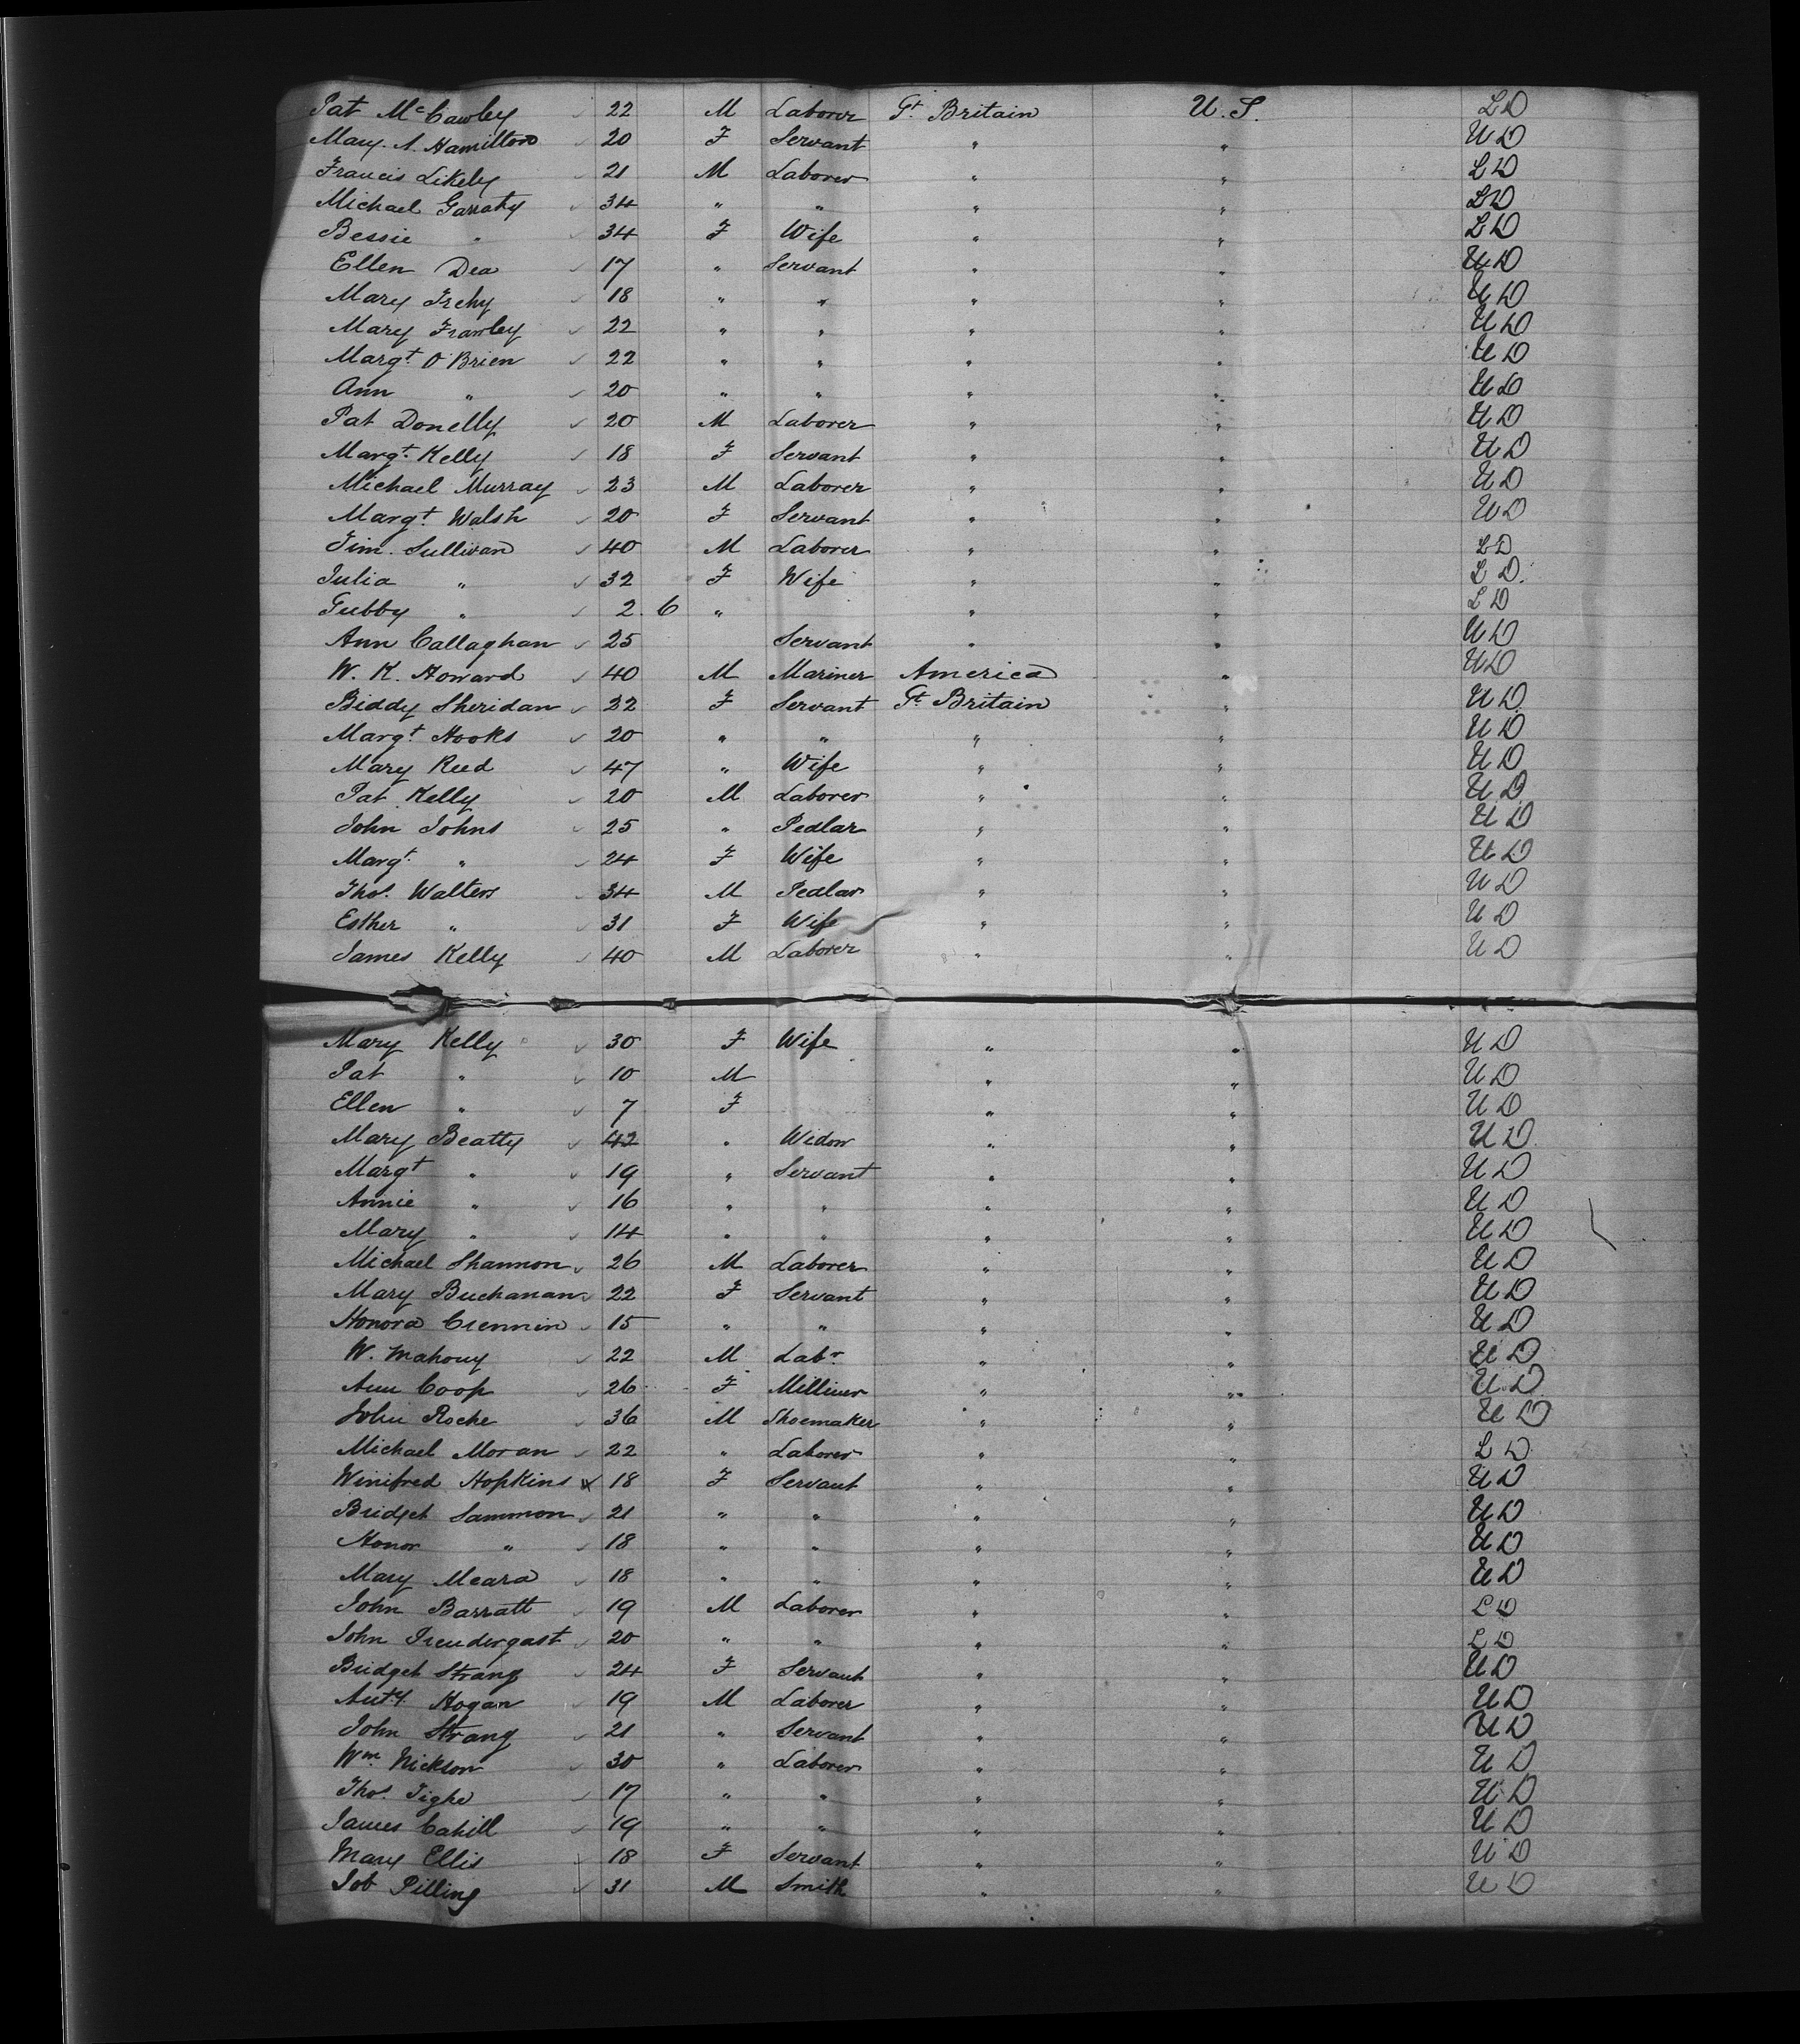 Pat McCawley 22 M Laborer Gt. Britain U.S. LD
Mary. A. Hamilton 20 F Servant " " UD
Francis Likely 21 M Laborer " " LD
Michael Garraty 34 " " " " LD
Bessie " 34 F Wife " " LD
Ellen Dea 17 " Servant " " UD
Mary 18 " " " " UD
Mary Frawley 22 " " " " UD
Margt. O'Brien 22 " " " " UD
Ann " 20 " " " " UD
Pat Donelly 20 M Laborer " " UD
Margt. Kelly 18 F Servant " " UD
Michael Murray 23 M Laborer " " UD
Margt. Walsh 20 F Servant " " UD
Tim. Sullivan 40 M Laborer " " LD
Julia " 32 F Wife " " LD
" 2. 6 " " " LD
Ann Callaghan 25 Servant " " UD
W. K. Howard 40 M Mariner America " UD
Biddy Sheridan 22 F Servant Gt. Britain " UD
Margt Hooks 20 " " " " UD
Mary Reed 47 " Wife " " UD
Pat Kelly 20 M Laborer " " UD
John Johns 25 " Pedlar " " UD
Margt. " 24 F Wife " " UD
Thos. Walters 34 M Pedlar " " UD
Esther " 31 F Wife " " UD
James Kelly 40 M Laborer " " UD
Mary Kelly 30 F Wife " " UD
Pat " 10 M " " UD
Ellen " 7 F " " UD
Mary Beatty 42 " Widow " " UD
Margt " 19 " Servant " " UD
Annie " 16 " " " " UD
Mary " 14 " " " " UD
Michael Shannon 26 M Laborer " " UD
Mary Buchanan 22 F Servant " " UD
Honora Crennin 15 " " " " UD
W. Mahony 22 M Labr. " " UD
Ann Coop 26 F Milliner " " UD
John Roche 36 M Shoemaker " " UD
Michael Moran 22 " Laborer " " LD
Winifred Hopkins 18 F Servant " " UD
Bridget Sammon 21 " " " " UD
Honor " 18 " " " " UD
Mary Meara 18 " " " " UD
John Barratt 19 M Laborer " " LD
John Prendergast 20 " " " " LD
Bridget Strang 24 F Servant " " UD
Anty. Hogan 19 M Laborer " " UD
John Strang 21 " Servant " " UD
Wm. Nickson 30 " Laborer " " UD
Thos. Tighe 17 " " " " UD
James Cahill 19 " " " " UD
Mary Ellis 18 F Servant " " UD
Job Pilling 31 M Smith " " UD